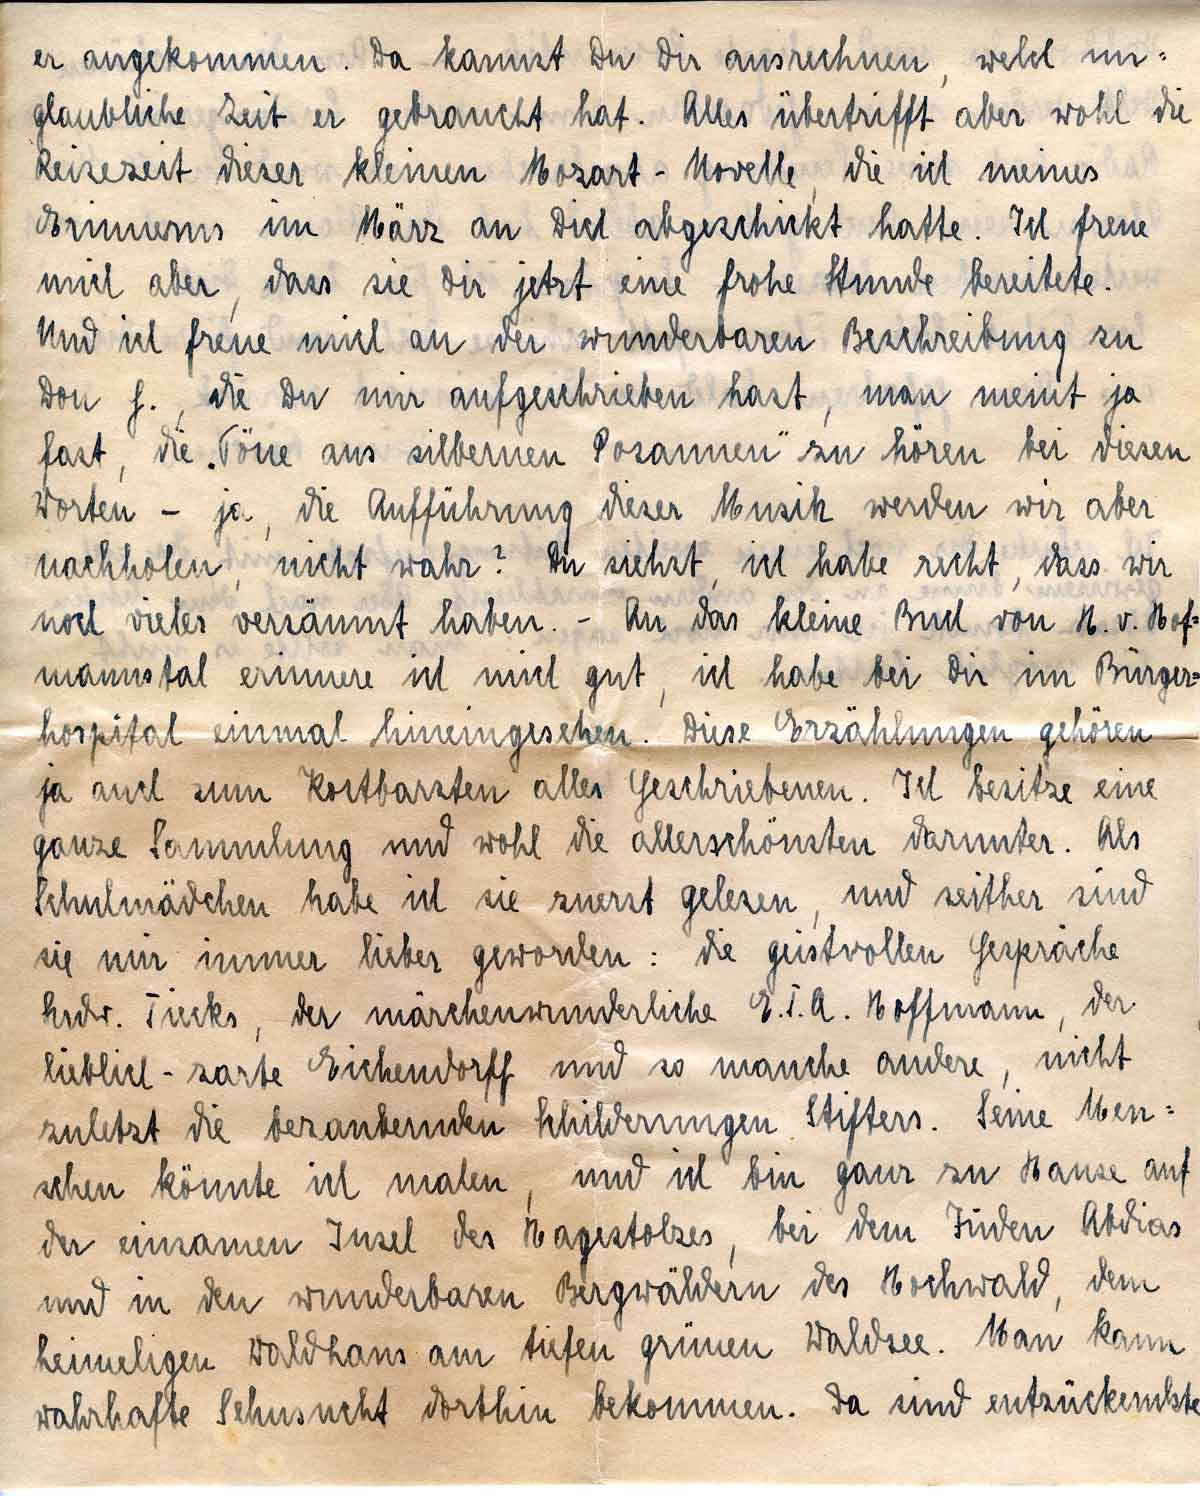 er angekommen. Da kannst Du Dir ausrechnen, welch un=
glaubliche Zeit er gebraucht hat. Alles übertrifft aber wohl die
Reisezeit dieser kleinen Mozart-Novelle, die ich meines
Erinnerns im März an Dich abgeschickt hatte. Ich freue
mich aber, dass sie Dir jetzt eine frohe Stunde bereitete.
Und ich freue mich an der wunderbaren Beschreibung zu
Don J., die Du mir aufgeschrieben hast, man meint ja
fast, die „Töne aus silbernen Posaunen" zu hören bei diesen
Worten – ja, die Aufführung dieser Musik werden wir aber
nachholen, nicht wahr? Du siehst, ich habe recht, dass wir
noch vieles versäumt haben. – An das kleine Buch von H. v. Hof=
mannstal erinnere ich mich gut, ich habe bei Dir im Bürger=
hospital einmal hineingesehen. Diese Erzählungen gehören
ja auch zum Kostbarsten alles Geschriebenen. Ich besitze eine
ganze Sammlung und wohl die allerschönsten darunter. Als
Schulmädchen habe ich sie zuerst gelesen, und seither sind
sie mir immer lieber geworden: die geistvollen Gespräche
Ludw. Tiecks, der märchenwunderliche E.T.A. Hoffmann, der
lieblich-zarte Eichendorff und so manche andere, nicht
zuletzt die bezaubernden Schilderungen Stifters. Seine Men=
schen könnte ich malen, und ich bin ganz zu Hause auf
der einsamen Insel des Hagestolzes, bei dem Juden Abdias
und in den wunderbaren Bergwäldern des Hochwald, dem
heimeligen Waldhaus am tiefen grünen Waldsee. Man kann
wahrhafte Sehnsucht dorthin bekommen. Da sind entzückendste